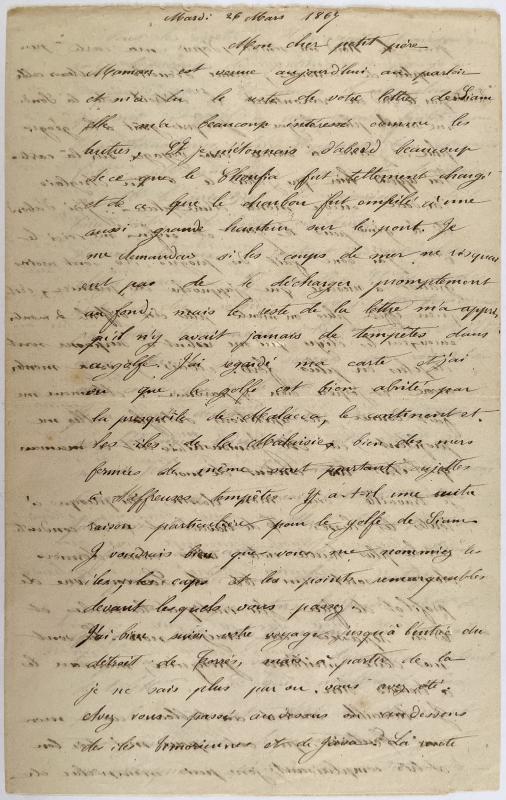 Mardi 26 Mars 1867
Mon cher petit père
Maman est venue aujourd'hui au parloir
et m'a lu le reste de votre lettre de Siam
Elle m'a beaucoup intéressé comme les
autres. Et je m'étonnais d'abord beaucoup
de ce que le fut tellement chargé
et de ce que le charbon fut empilé à une
aussi grande hauteur sur le pont. Je
me demandais si les coups de mer ne risquai
ent pas de le décharger promptement
au fond, mais le reste de la lettre m'a appris
qu'il n'y avait jamais de tempêtes dans
ce golfe. J'ai regardé ma carte et j'ai
vu que le golfe est bien abrité par
la presqu'île de Malacca, le continent et
les îles de la Malaisie, bien des mers
fermées de même sont pourtant sujettes
à d'affreuses tempêtes. Y a-t-il une autre
raison particulière pour le golfe de Siam
Je voudrais bien que vous me nommiez les
îles, les caps et les points remarquables
devant lesquels vous passez
J'ai bien suivi votre voyage jusqu'à l'entrée du
détroit de Torrés, mais à partir de la
je ne sais plus par ou vous avez été.
Etes vous passé au dessus ou au dessous
des îles timoriennes et de Java. La route